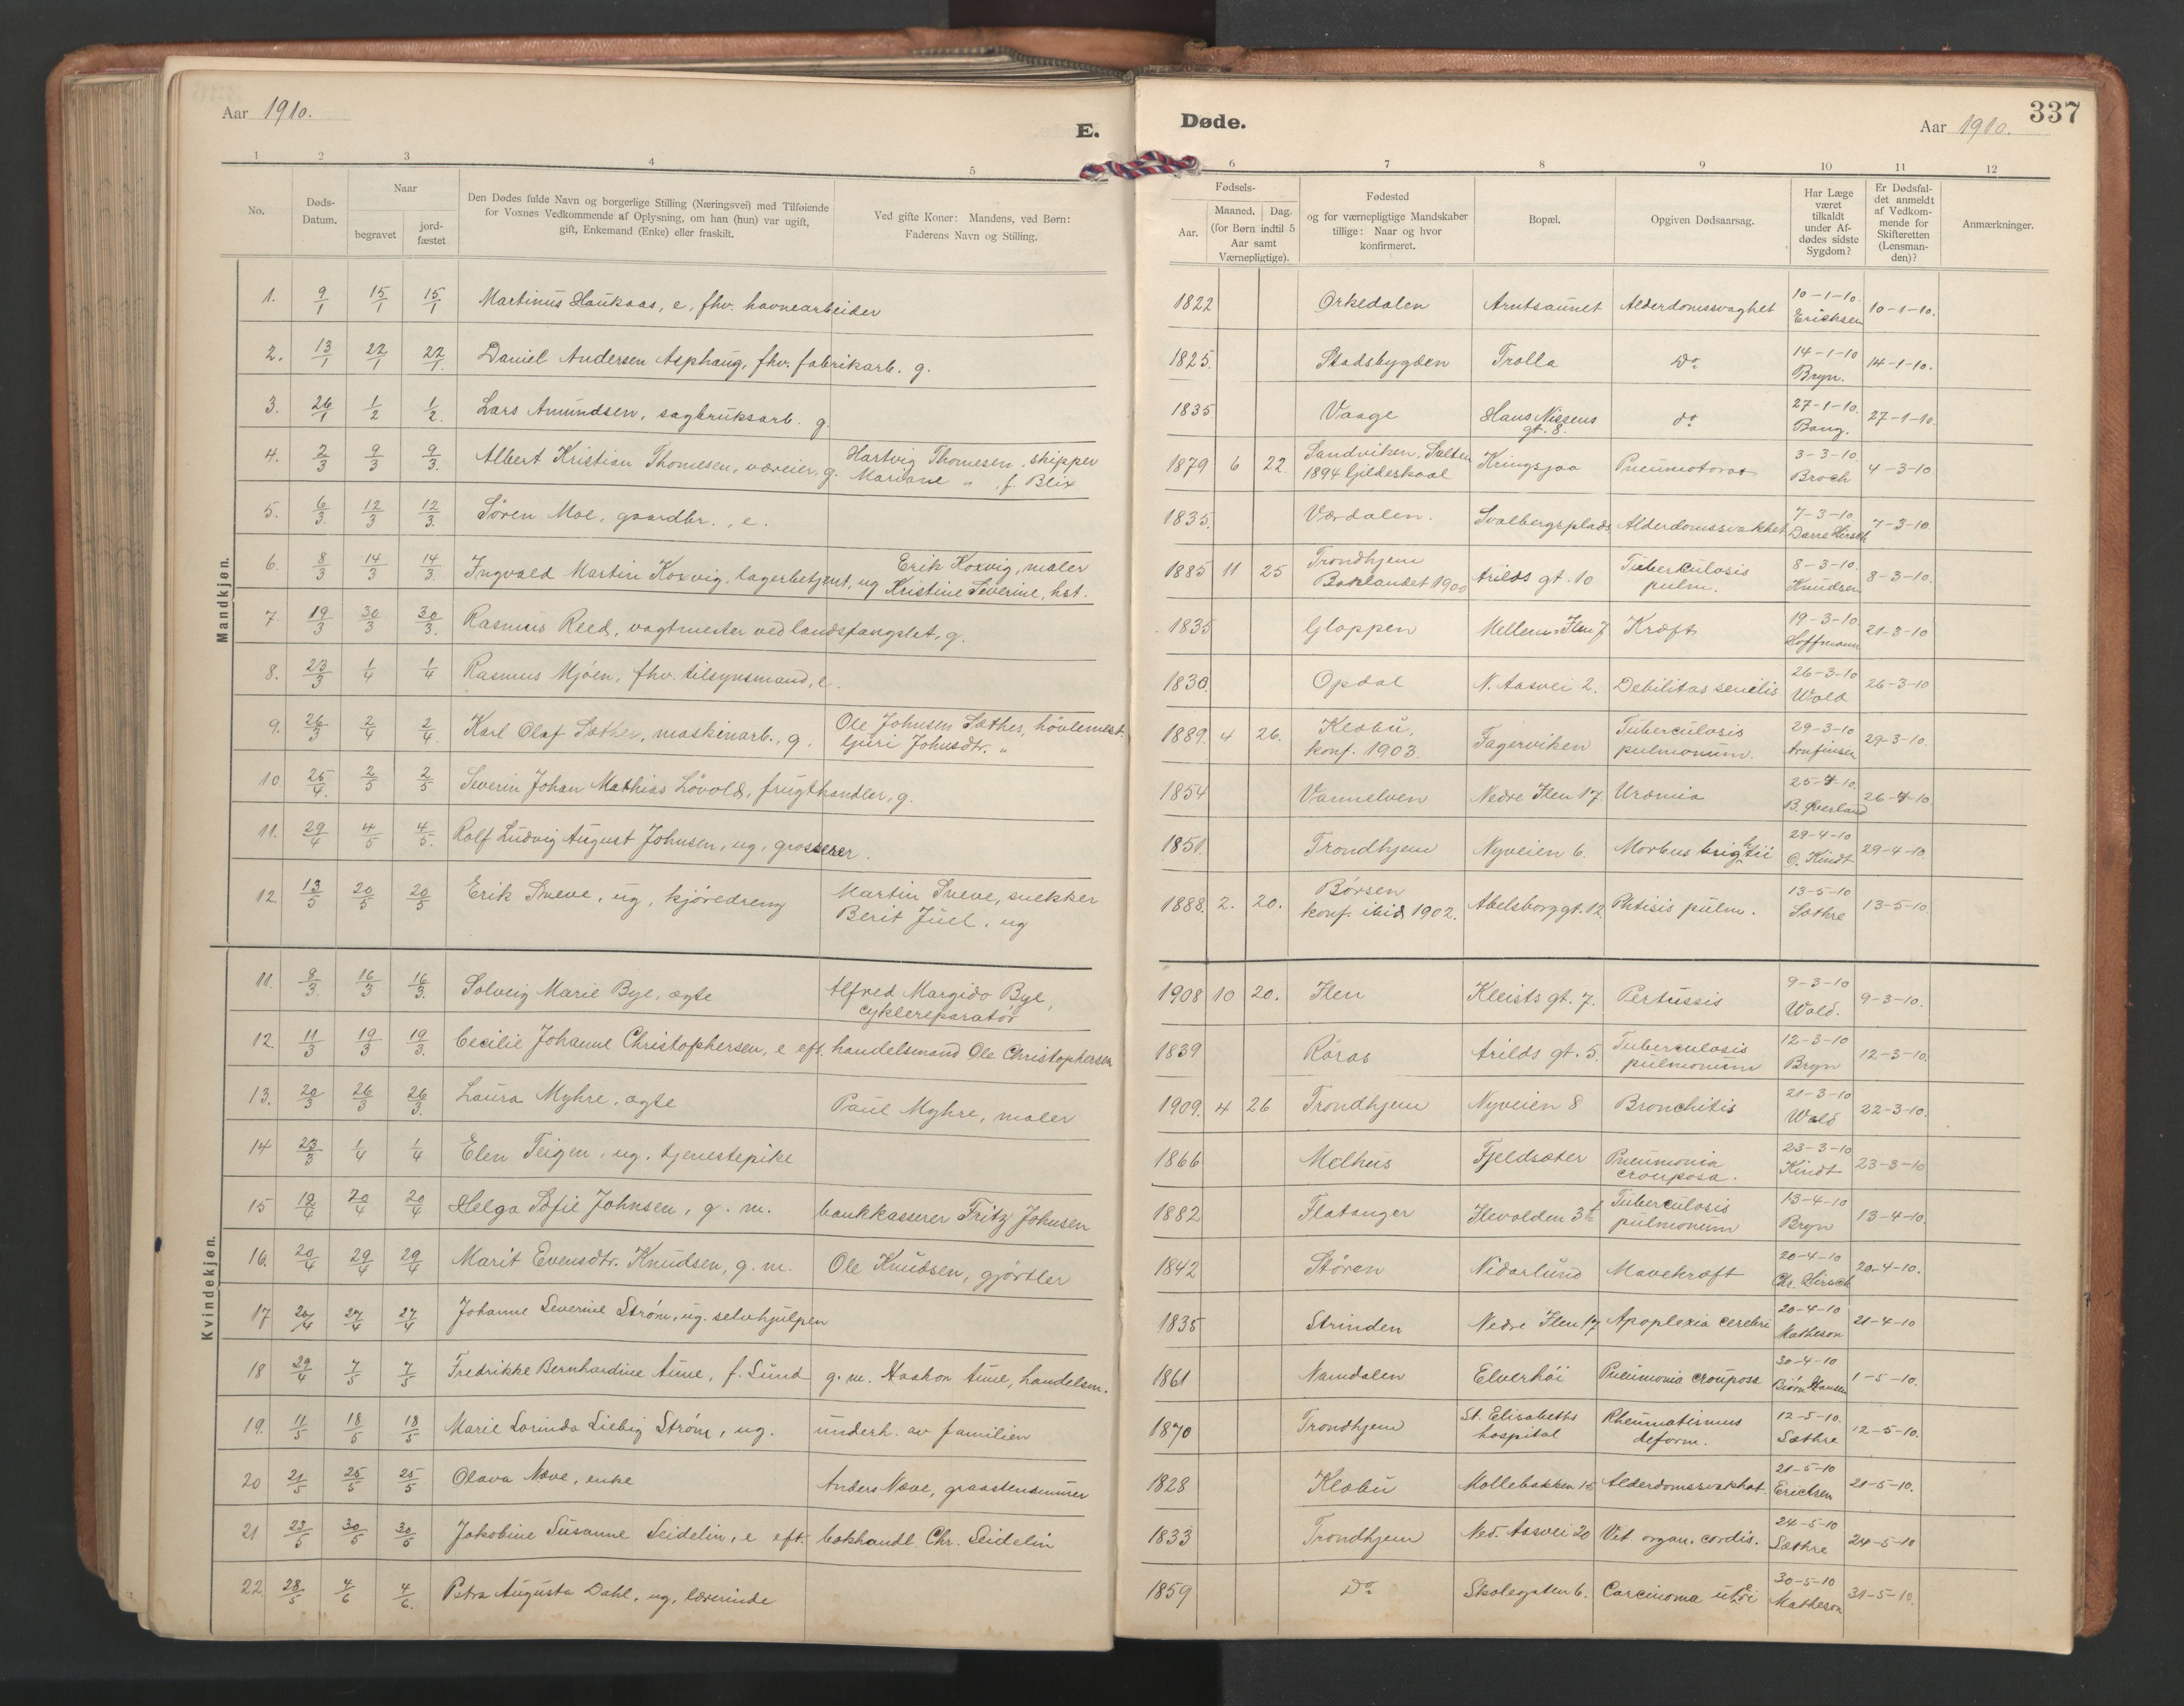 Aar 1910.
E. Døde.
Aar 1910.
337
1 2 3 4 5 6 7 8 9 10 11 12
No.
Døds-Datum.
Naar
begravet
jord-fæstet
Den Dødes fulde Navn og borgerlige Stilling (Næringsvei) med Tilføiende
for Voxnes Vedkommende af Oplysning, om han (hun) var ugift,
gift, Enkemand (Enke) eller fraskilt.
Ved gifte Koner: Mandens, ved Børn:
Faderens Navn og Stilling.
Fødsels-
Aar.
Maaned. Dag.
(for Børn indtil 5
Aar samt
Værnepligtige).
Fødested
og for værnepligtige Mandskaber
tillige: Naar og hvor
konfirmeret.
Bopæl.
Opgiven Dødsaarsag.
Har Læge
været
tilkaldt
under Af-
dødes sidste
Sygdom?
Er Dødsfal-
det anmeldt
af Vedkom-
mende for
Skifteretten
(Lensman-
den)?
Anmærkninger.
Mandkjøn.
1. 9/1 15/1 15/1 Martinus Haukaas, e, fhv. havnearbeider 1822 Orkedalen Arntsaunet Alderdomssvaghet 10-1-10. Erichsen 10-1-10.
2. 13/1 22/1 22/1. Daniel Andersen Asphaug, fhv. fabrikarb. g. 1825. Stadsbygden Trolla Do 14-1-10 Bryn. 14-1-10.
3. 26/1 1/2 1/2. Lars Amundsen, sagbruksarb. g. 1835 Vaage Hans Nissens gt. 8. do 27-1-10. Bang. 27-1-10.
4. 2/3 9/3 9/3. Albert Kristian Thomesen, væreier, g. Hartvig Thomesen, skipper
Mariane " , f. Blix 1879 6 22. Sandviken, Salten
1894 Gildeskaal Kringsjaa Pneumotorax 3-3-10. Broch 4-3-10.
5. 6/3. 12/3 12/3. Søren Moe, gaardbr., e. 1835. Værdalen. Svalbergsplads Alderdomssvakhet 7-3-10. Darre Hirsch 7-3-10.
6. 8/3 14/3 14/3. Ingvald Martin Koxvig, lagerbetjent, ug Erik Koxvig, maler
Kristine Severine, hst. 1885 11 25 Trondhjem
Baklandet 1900 Arilds gt. 10 Tuberkulosis
pulm. 8-3-10. Knudsen 8-3-10.
7. 19/3 30/3 30/3. Rasmus Reed, vagtmester ved landsfangslet, g. 1835 Gloppen Mellem-Ilen 7 Kræft 19-3-10 Hoffmann 21-3-10
8. 23/3 1/4 1/4 Rasmus Mjøen, fhv. tilsynsmand, e. 1830. Opdal N. Aasvei 2. Debilitas senilis 26-3-10 Wold 26-3-10
9. 26/3 2/4 2/4. Karl Olaf Sæther, maskinarb., g. Ole Johnsen Sæther, høvlemest.
Guri Johnsdtr. " 1889. 4 26. Klæbu,
konf. 1903. Fagerviken Tuberculosis
pulmonum. 29-3-10 Arnfinsen 29-3-10.
10 25/4. 2/5 2/5 Severin Johan Mathias Løvold, frugthandler, g. 1854 Vannelven Nedre Ilen 17 Uræmia 25-4-10. B. Øverland 26-4-10.
11. 29/4 4/5 4/5. Rolf Ludvig August Johnsen, ug, grosserer. 1851. Trondhjem Nyveien 6. Morbus brightii 29-4-10 O. Kindt 29-4-10.
12. 13/5 20/5 20/5 Erik Sneve, ug, kjøredreng Martin Sneve, snekker
Berit Juel, ug 1888. 2. 20. Børsen
konf. ibid 1902. Abelsborggt. 12. Phtisis pulm. 13-5-10 Sæthre 13-5-10.
Kvindekjøn.
11. 9/3. 16/3 16/3. Solveig Marie Bye, ægte Alfred Margido Bye,
cyklereparatør 1908 10 20. Ilen Kleists gt. 7. Pertussis 9-3-10 Wold. 9-3-10.
12. 11/3 19/3 19/3. Cecilie Johanne Christophersen, e eft. handelsmand Ole Christophersen 1839 Røros Arilds gt. 5. Tuberculosis
pulmonum 12-3-10 Bryn 12-3-10.
13. 20/3 26/3 26/3. Laura Myhre, ægte Paul Myhre, maler 1909. 4 26 Trondhjem Nyveien 8 Bronchitis 21-3-10 Wold 22-3-10.
14 23/3 1/4 1/4 Elen Teigen, ug. tjenestepike 1866 Melhus Fjeldsæter Pneumonia
crouposa. 23-3-10 Kindt 23-3-10
15 12/4 20/4 20/4 Helga Sofie Johnsen, g. m. bankkasserer Fritz Johnsen 1882 Flatanger Ilevolden 3 b Tuberculosis
pulmonum 13-4-10 Bryn 13-4-10.
16. 20/4 29/4 29/4 Marit Evensdtr. Knudsen, g. m. Ole Knudsen, gjørtler 1842 Støren Nidarlund Mavekræft 20-4-10 Chs. Hirsch 20-4-10.
17 20/4 27/4 27/4 Johanne Severine Strøm, ug. selvhjulpen 1835 Strinden Nedre Ilen 17 Apoplexia cerebri 20-4-10 Matheson 21-4-10
18 29/4 7/5 7/5 Fredrikke Bernhardine Aune, f. Lund g. m. Haakon Aune, handelsm. 1861 Namdalen Elverhøi Pneumonia crouposa 30-4-10 Biørn Hansen 1-5-10.
19. 11/5 18/5 18/5 Marie Lorinda Liebig Strøm, ug. underh. av familien 1870 Trondhjem St. Elisabeths
hospital Rheumatismus
deform. 12-5-10. Sæthre 12-5-10.
20 21/5 25/5 25/5 Olava Næve, enke Anders Næve, graastensmurer 1828 Klæbu Møllebakken 15 Alderdomssvakhet. 21-5-10 Erichsen 21-5-10.
21 23/5 30/5 30/5 Jakobine Susanne Seidelin, e eft. bokhandl. Chr. Seidelin 1833 Trondhjem Ned. Aasvei 20 Vit. organ. cordis. 24-5-10 Sæthre 24-5-10
22. 28/5 4/6 4/6. Petra Augusta Dahl, ug, lærerinde 1859 Do Skolegaten 6. Carcinoma uteri 30-5-10 Matheson 31-5-10.